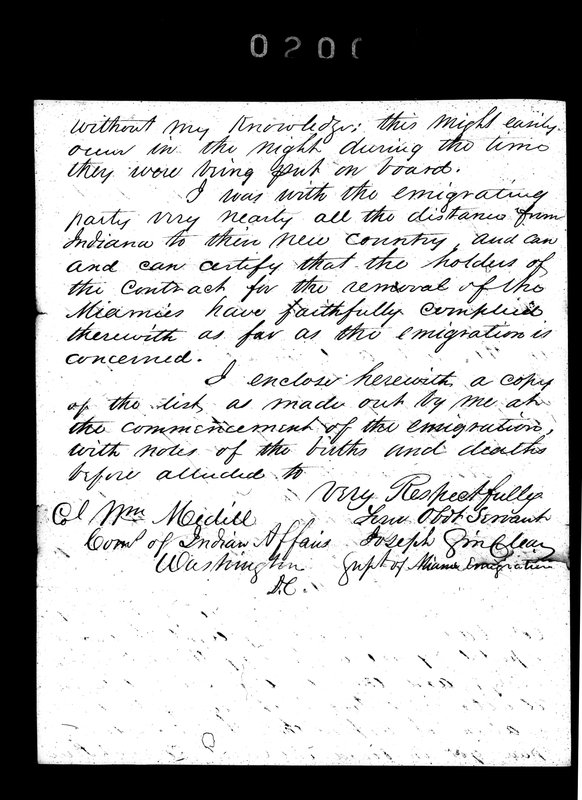 020
without my Knowledge; this might easily
occur in the night during the time
they were being put on board.
I was with the emigrating
party very nearly all the distance from
Indiana to their new country, and can
and can certify that the holders of
the Contract for the removal of the
Miamies have faithfully complied
therewith as far as the emigration is
concerned.
I enclose herewith a copy
of the list, as made out by me at
the commencement of the emigration,
with notes of the births and deaths
before alluded to
Very Respectfully
Col Wm Medill
Your Obdt Servant
Comr of Indian Affairs
Joseph Sinclear
Washington
Supt of Miami Emigration
D.C.